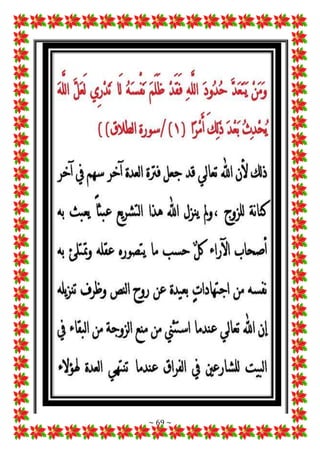 وَمَنْ يَتَعَدَّ حُدُودَ اللَّهِ فَقَدْ ظَلَمَ نَفْسَهُ لَا تَدْرِي لَعَلَّ اللَّهَ
يُحْدِثُ بَعْدَ ذَلِكَ أَمْرًا (١)/سورة الطلاق))
ذلك لأن الله تعالي قد جعل فترة العدة آخر سهم في آخر
كنانة للزوج ، ولم ينزل الله هذا التشريع عبثاً يعبث به
أصحاب الآراء كلٌ حسب ما يتصوره عقله وتمتلئ به
نفسه من اجتهاداتٍ بعيدة عن روح النص وظرف تنزيله
إن الله تعالي عندما استثني من منع الزوجة من البقاء في
البيت للشارعين في الفراق عندما تنتهي العدة لهؤلاء
~ 69 ~